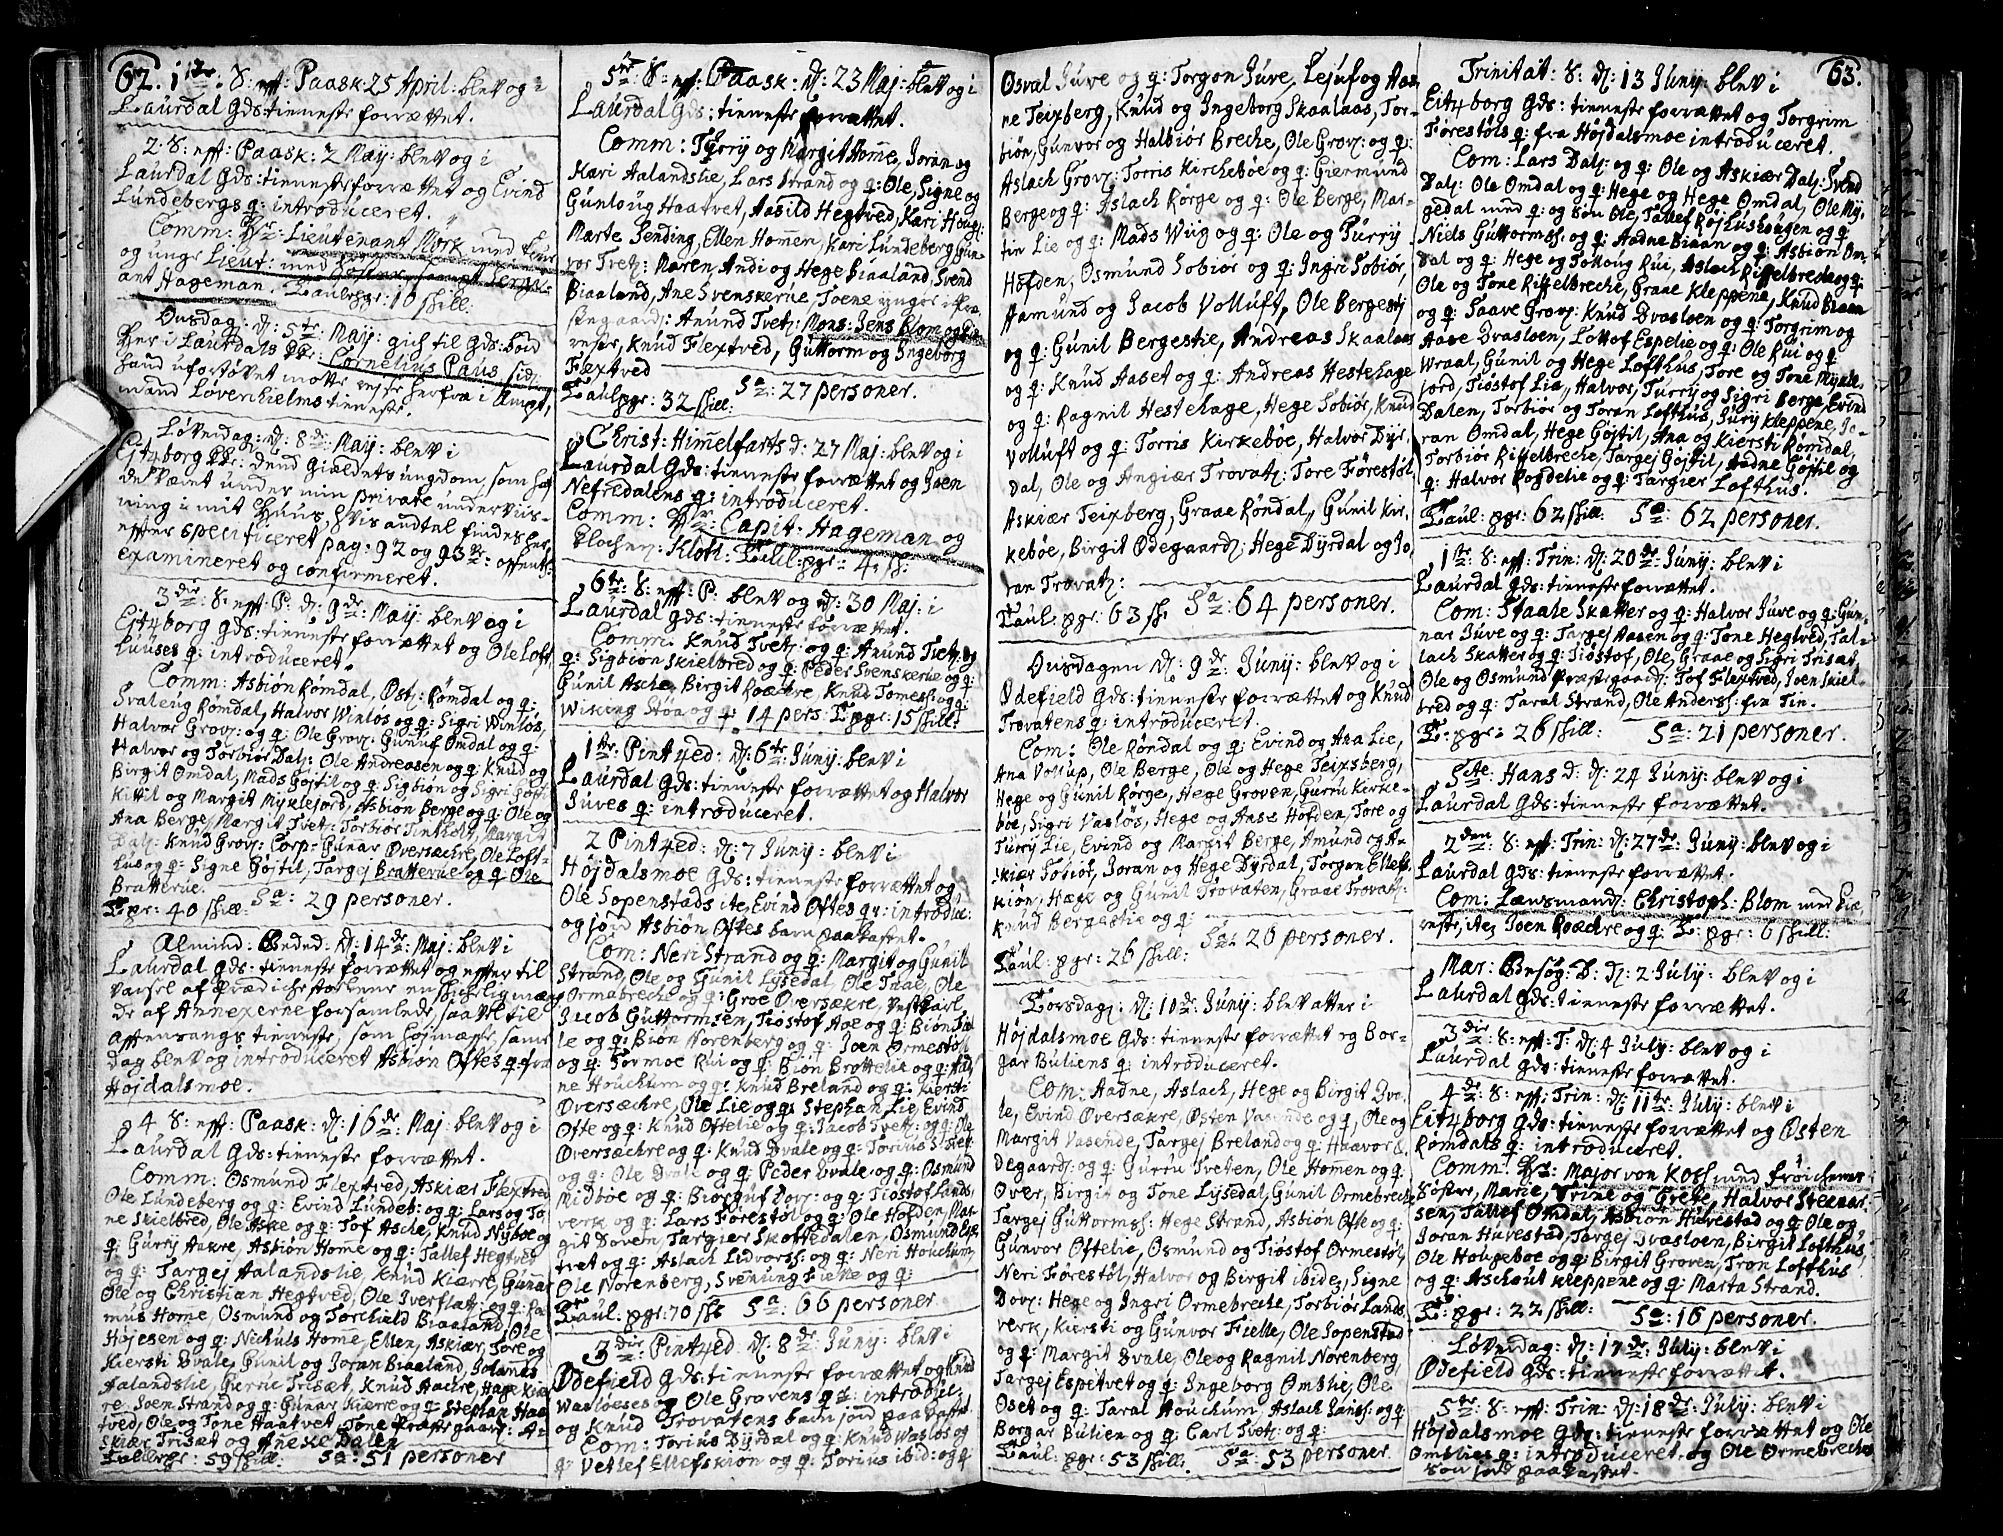 62. 1ste: S: eft: Paask: 25 April: blev og i
Laurdal Gds: tienneste forrættet.
2. S: eft: Paask: 2 Maij: blev og i
Laurdal Gds: tienneste forrættet og Eivind
Lundebergs q: introduceret.
Comm: Hr: Lieutenant Mørk med
og unge Lieut: med
ant Hageman. Taul: pgr: 10 skill:
Onsdag d: 5te Maij: gich til Gds: bord
her i Laurdals Hr: Cornelius Paus,
hand ufortøvet motte reise herfra i Ampt,
mand Løvenhielms tieneste.
Løverdag: d: 8de Maij: blev i
Eitzborg dend Gieldets ungdom, som haf
de været under min private underviis-
ning i mit Huus, hvis andtel findes her
efter specificeret pag: 92 og 93 offentl:
examineret og confirmeret.
3die: S: eft: P: d: 9de: Maij: blev og i
Eitzborg Gds: tienneste forrættet og Ole Loft
huuses q: introduceret.
Comm: Asbiøn Rømdal, Østen: Rømdal og q:
Svalaug Rømdal, Halvor Winløs og q: Sigri Winløs,
Halvor Grov: og q: Ole Grov: Gunuf Omdal og q:
Halvor og Torbiør Dal: Ole Andreasen og q: Knud og
Birgit Omdal, Mads Gøjtil og q: Sigbiøn og Sigri Gøjt:
Kittil og Margit Myklejord, Asbiøn Berge og q: Ole og
Ana Berge, Margit Tvet: Torbiør Tinholt, Margit
Dal: Knud Grov: Corp: Gunar Øversæchre, Ole Loft-
hus og q: Signe Gøjtil, Targej Bratterue og q: Ole
Bratterue.
T: pgr: 40 skill: Sa: 29 personer.
Almind: Beded: d: 14de: Maj: blev i
Laurdal Gds: tienneste forrættet og effter til
varsel af prædichestolene en skichelig mæng
de af Annexerne forsamlede, saavel til
afftensangs tienneste, som højmæsse, samme
Dag blev og introduceret Asbiøn Oftes q: fra
Højdalsmoe.
4 S: eft: Paask: d: 16de: Maj: blev og i
Laurdal Gds: tienneste forrættet.
Comm: Osmund Flextved, Askiær Flextved
Ole Lundeberg og q: Eivind Lundeb: og q: Lars og To
ne Skielbred, Ole Aske og q: Tof Asche, Knud Nyboe og
q: Gurry Aakre, Asbiøn Home og q: Tallef Hegtved
og q: Targej Aalandslie, Knud Kiærre, Gunar
Ole og Christian Hegtved, Ole Iverflat: og q: Ra
mus Home, Osmund og Torchield Biaaland, Ole
Højesen og q: Nichuls Home, Ellen, Askiær, Tore og
Kiersti Dvale, Gunil og Joran Biaaland,
Aalandslie, Gurrue Trisæt, Knud Aacre, Hage Kiær
re, Joen Strand og q: Gunar Kiærre og q: Stephan Haa
tved, Ole og Tone Haatvet, Tone Præstegaard: As
kiær Trisæt og Aneke Dalen
Taul: pgr: 59 skill: Sa: 51 personer
5te: S: eft: Paask: d: 23 Maj: blev og i
Laurdal Gds: tienneste forrættet.
Comm: Turrij og Margit Home, Joran og
Kari Aalandslie, Lars Strand og q: Ole, Signe og
Gunloug Haatvet, Aasild Hegtved, Kari Houg:
Marte Sending, Ellen Homen, Kari Lundeberg Gun-
vor Tvet: Maren, Andi og Hege Biaaland, Svend
Biaaland, Ane Svenskerue, Toene yngre i Præ
stegaard: Anund Tvet: Mons: Jens Blom og Kiæ
reste, Knud Flextved, Guttorm og Ingeborg
Flextved
Taul: pgr: 32 skill: Sa: 27 personer.
Christ: Himmelfarts d: 27 Maj: blev og i
Laurdal Gds: tienneste forrættet og Joen
Nefredalens q: introduceret.
Comm: Hr: Capit: Hageman og
Klocher: Klott. Taul: pgr: 4 sk:
6te: S: eft: P: blev og d: 30 Maj: i
Laurdal Gds: tienneste forrættet.
Comm: Knud Tvet: og q: Anund Tvet: og
q: Sigbiøn Skielbred og q: Peder Svenskerue og q:
Gunil Asche, Birgit Roachre, Knud Tomes: og q:
Wiking Høa og q. 14 pers. T: pgr: 15 skill:
1ste: Pintzed: d: 6te: Junij: blev i
Laurdal Gds: tienneste forrættet og Halvor
Juves q: introduceret.
2 Pintzed: d: 7 Junij: blev i
Højdalsmoe Gds: tienneste forrættet og
Ole Sopenstads ite, Evind Oftes q: introduc:
og jord Asbiøn Oftes barn paakastet.
Com: Neri Strand og q: Margit og Gunil
Strand, Ole og Gunil Lysedal, Ole Ole
Ormebreche og q: Groe Øversækre,
Jacob Guttormsen, Tiostof Aae og q: Biøn Fiel
le og q: Biøn Norenberg og q: Joen Ormestøl
og q: Tormoe Rui og q: Biøn Brottelie og q:
ne Houchum og q: Knud Breland og q: Kiersti
Øversæchre, Ole Lie og q: Stephan Lie, Evind
Ofte og q: Knud Oftelie og q: Jacob Tvet: og q: Ole
Øversæchre og q: Knud Dvale og q: Torius
og q: Ole Dvale og q: Peder Dvale og q: Osmund
Midbøe og q: Biørguf Dov: og q: Tiostof Lands
verk og q: Lars Førestøl og q: Ole Hofden, Mar
git Doven, Targier Skottedalen, Osmund Espe
tvet og q: Aslach Lidvors: og q: Neri Houchum,
Ole Norenberg, Svenung Fielle og q:
Taul: pgr: 70 sk: Sa: 66 personer
3die Pintzed: d: 8de: Junij: blev i
Ødefield Gds: tienneste forrættet og Knud
Wasløeses og Ole Grovens q: introduc:
og Knud Trovatens barn jord paakaste
Com: Torius Dyrdal og q: Knud Wasløs og
q: Vetlef Ellefskion og q: Torius ibid: og q
Osval Juve og q: Torgon Juve, Lejuf og Aas
ne Teixberg, Knud og Ingeborg Skaalaas, Tor-
biøn, Gunvor og Halbiør Breche, Ole Grov: og q:
Aslach Grov: Torris Kirchebøe og q: Giermund
Berge og q: Aslach Rørge og q: Ole Berge, Mar-
tin Lie og q: Mads Wiig og q: Ole og Purry
Høfden, Osmund Sobiør og q: Ingri Sobiør,
Aamund og Jacob Volluft, Ole Bergestij
og q: Gunil Bergestie, Andreas Skaalaas
og q: Knud Aaset og q: Andreas Hestehage
og q: Ragnil Hestehage, Hege Sobiør, Knud
Volluft og q: Torris Kirkebøe, Halvor Dyr,
Dal, Ole og Angiær Trovat: Tore Førestøl
Askiær Teixberg, Graae Røndal, Gunil Kir,
kebøe, Birgit Ødegaard: Hege Dyrdal og Jo,
ran Trovat:
Taul: pgr: 63 sk Sa: 64 personer.
Onsdagen d: 9de: Junij: blev og i
Ødefield Gds: tienneste forrættet og Knud
Trovatens q: introduceret.
Com: Ole Røndal og q: Evind og Ana Lie,
Ana Vollup, Ole Berge, Ole og Hege Teixsberg,
Hege og Gunil Rørge, Hege Groven, Gurru Kirke-
bøe, Sigri Vasløs, Hege og Aase Hofden, Tore og
Turry Lie, Evind og Margit Berge, Amund og A-
skiær Sobiør, Joran og Hege Dyrdal, Torgon Ellefs
kiøn, Hæge og Gunil Trovaten, Graae Trovat:
Knud Bergestie og q:
Taul: pgr: 26 skill: Sa: 26 personer.
Torsdag: d: 10de: Junij: blev atter i
Højdalsmoe Gds: tienneste forrættet og Bor-
gar Buliens q: introduceret.
Com: Aadne, Aslach, Hege og Birgit Dva-
le, Evind Øversækre, Østen Vasende og q, Ole og
Margit Vasende, Targej Breland og q: Haavor Ø,
degaard: og q: Gurru Tveten, Ole Homen og q:
Over, Birgit og Tone Lysedal, Gunil Ormebreche
Targej Guttorms: Hege Strand, Asbiøn Ofte og q:
Gunvor Oftelie, Osmund og Tiostof Ormestøl,
Neri Førestøl, Halvor og Birgit ibide, Signe
Dov: Hege og Ingri Ormebreche, Torbiør Lands,
verk, Kiersti og Gunvor Fielle, Ole Sopenstad
og q: Margit Dvale, Ole og Ragnil Norenberg
Targej Espetvet og q: Ingeborg Omslie, Ole
Oset og q: Taral Houchum, Aslach Jans: og q:
Borgar Bulien og q: Carl Tvet: og q:
Taul: pgr: 53 skill: Sa: 53 personer.
63.
Trinitat: S: d: 13 Junij: blev i
Eitzborg Gds: tienneste forrættet og Torgrim
Førestøls q: fra Højdalsmoe introduceret.
Com: Lars Dal: og q: Ole og Askiær Dal: Svend
Dal: Ole Omdal og q: Hege og Hege Omdal, Ole My,
gedal med q: og søn Ole, Tallef Røjlushougen og q:
Niels Guttorms: og q: Aadne Biaan og q: Asbiøn Om-
dal og q: Hege og Tollong Rui, Aslach Riffelbreche og q:
Ole og Tone Riffelbreche, Graae Kleppene, Knud Biaan
og q: Saave Grov: Knud Dvasloen og q: Torgrim og
Aase Dvasloen, Lottof Espelie og q: Ole Rui og q:
Wraal, Gunil og Hege Lofthus, Tore og Tone Mykle,
jord, Tiostof Lia, Halvor, Turry og Sigri Berge, Evind
Dalen, Torbiør og Toran Lofthus, Jury Kleppene, Jo-
ran Omdal, Hege Gøjtil, Ana og Kiersti Rømdal,
Torbiør Riffelbreche, Targej Gøjtil, Aadne Gøjtil og
q: Halvor Rogdelie og q: Targier Lofthus.
Taul: pgr: 62 skill: Sa: 62 personer.
1ste: S: eft: Trin: d: 20de: Junij: blev i
Laurdal Gds: tienneste forrættet.
Com: Staale Skatter og q: Halvor Juve og q: Gun,
nar Juve og q: Targej Aasen og q: Tone Hegtved, Tal-
lach Skatter og q: Tiostof, Ole, Graae og Sigri Trisæt,
Ole og Osmund Præstegaard: Tof Flextved, Joen Skiel-
bred og q: Taral Strand, Ole Anders: fra Tin.
T: pgr: 26 skill: Sa: 21 personer.
Scte: Hans d: d: 24 Junij: blev og i
Laurdal Gds: tienneste forrættet.
2den: S: eft: Trin: d: 27de: Junij: blev og i
Laurdal Gds: tienneste forrættet.
Com: Lænsmand: Christoph: Blom med Kiæ
reste, ite, Joen Roachre og q: T: pgr: 6 skill:
Mar: Besøg: D: d: 2 Julij: blev og i
Laurdal Gds: tienneste forrættet.
3die: S: eft: T: d: 4 Julij: blev og i
Laurdal Gds: tienneste forrættet.
4de: S: eft: Trin: d: 11te: Julij: blev i
Eitzborg Gds: tienneste forrættet og Østen
Rømdals q: introduceret.
Comm: Hr: Major von Koss med Frøichener
Søstre, Marie, Trine og Grete, Halvor Stenar
sen, Tallef Omdal, Asbiøn Huvestad og q: Ole og
Joran Huvestad, Targej Dvasloen, Birgit Lofthus,
Ole Hougeboe og q: Birgit Groven, Tron Lofthus
og q: Aschout Kleppene og q: Marta Strand.
T: pgr: 22 skill: Sa: 16 personer.
Løverdag: d: 17de: Julij: blev i
Ødefield Gds: tienneste forrættet.
5te: S: eft: Trin: d: 18de: Julij: blev i
Højdalsmoe Gds: tienneste forrættet og Ole
Omslies q: introduceret og Ole Ormebreches
søn jord paakastet.